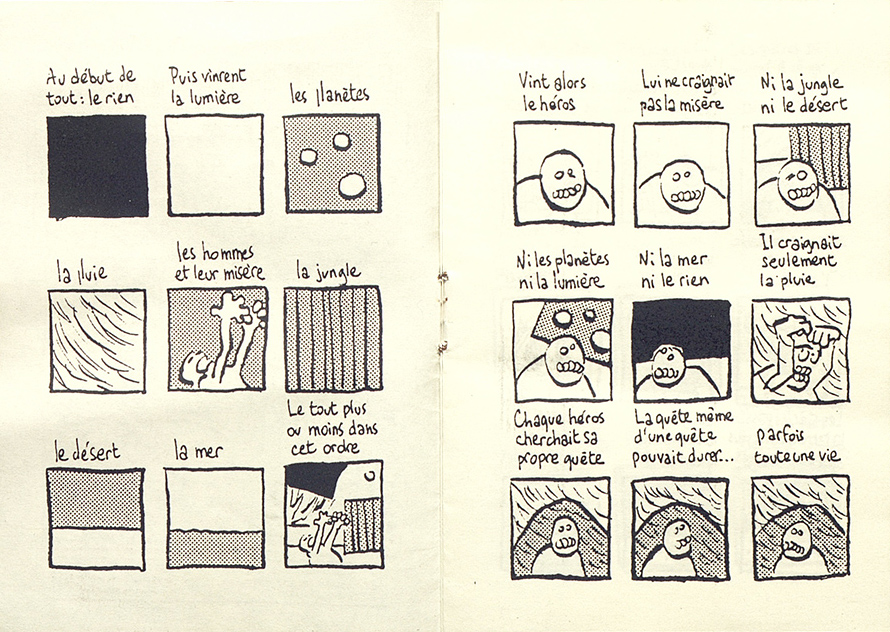 Au début de
tout : le rien
Puis vinrent
la lumière
les planètes
la pluie
les hommes
et leur misère
la jungle
le désert
la mer
Le tout plus
ou moins dans
cet ordre
Vint alors
le héros
Lui ne craignait
pas la misère
Ni la jungle
ni le désert
Ni les planètes
ni la lumière
Ni la mer
ni le rien
Il craignait
seulement
la pluie
Chaque héros
cherchait sa
propre quête
La quête même
d'une quête
pouvait durer...
parfois
toute une vie